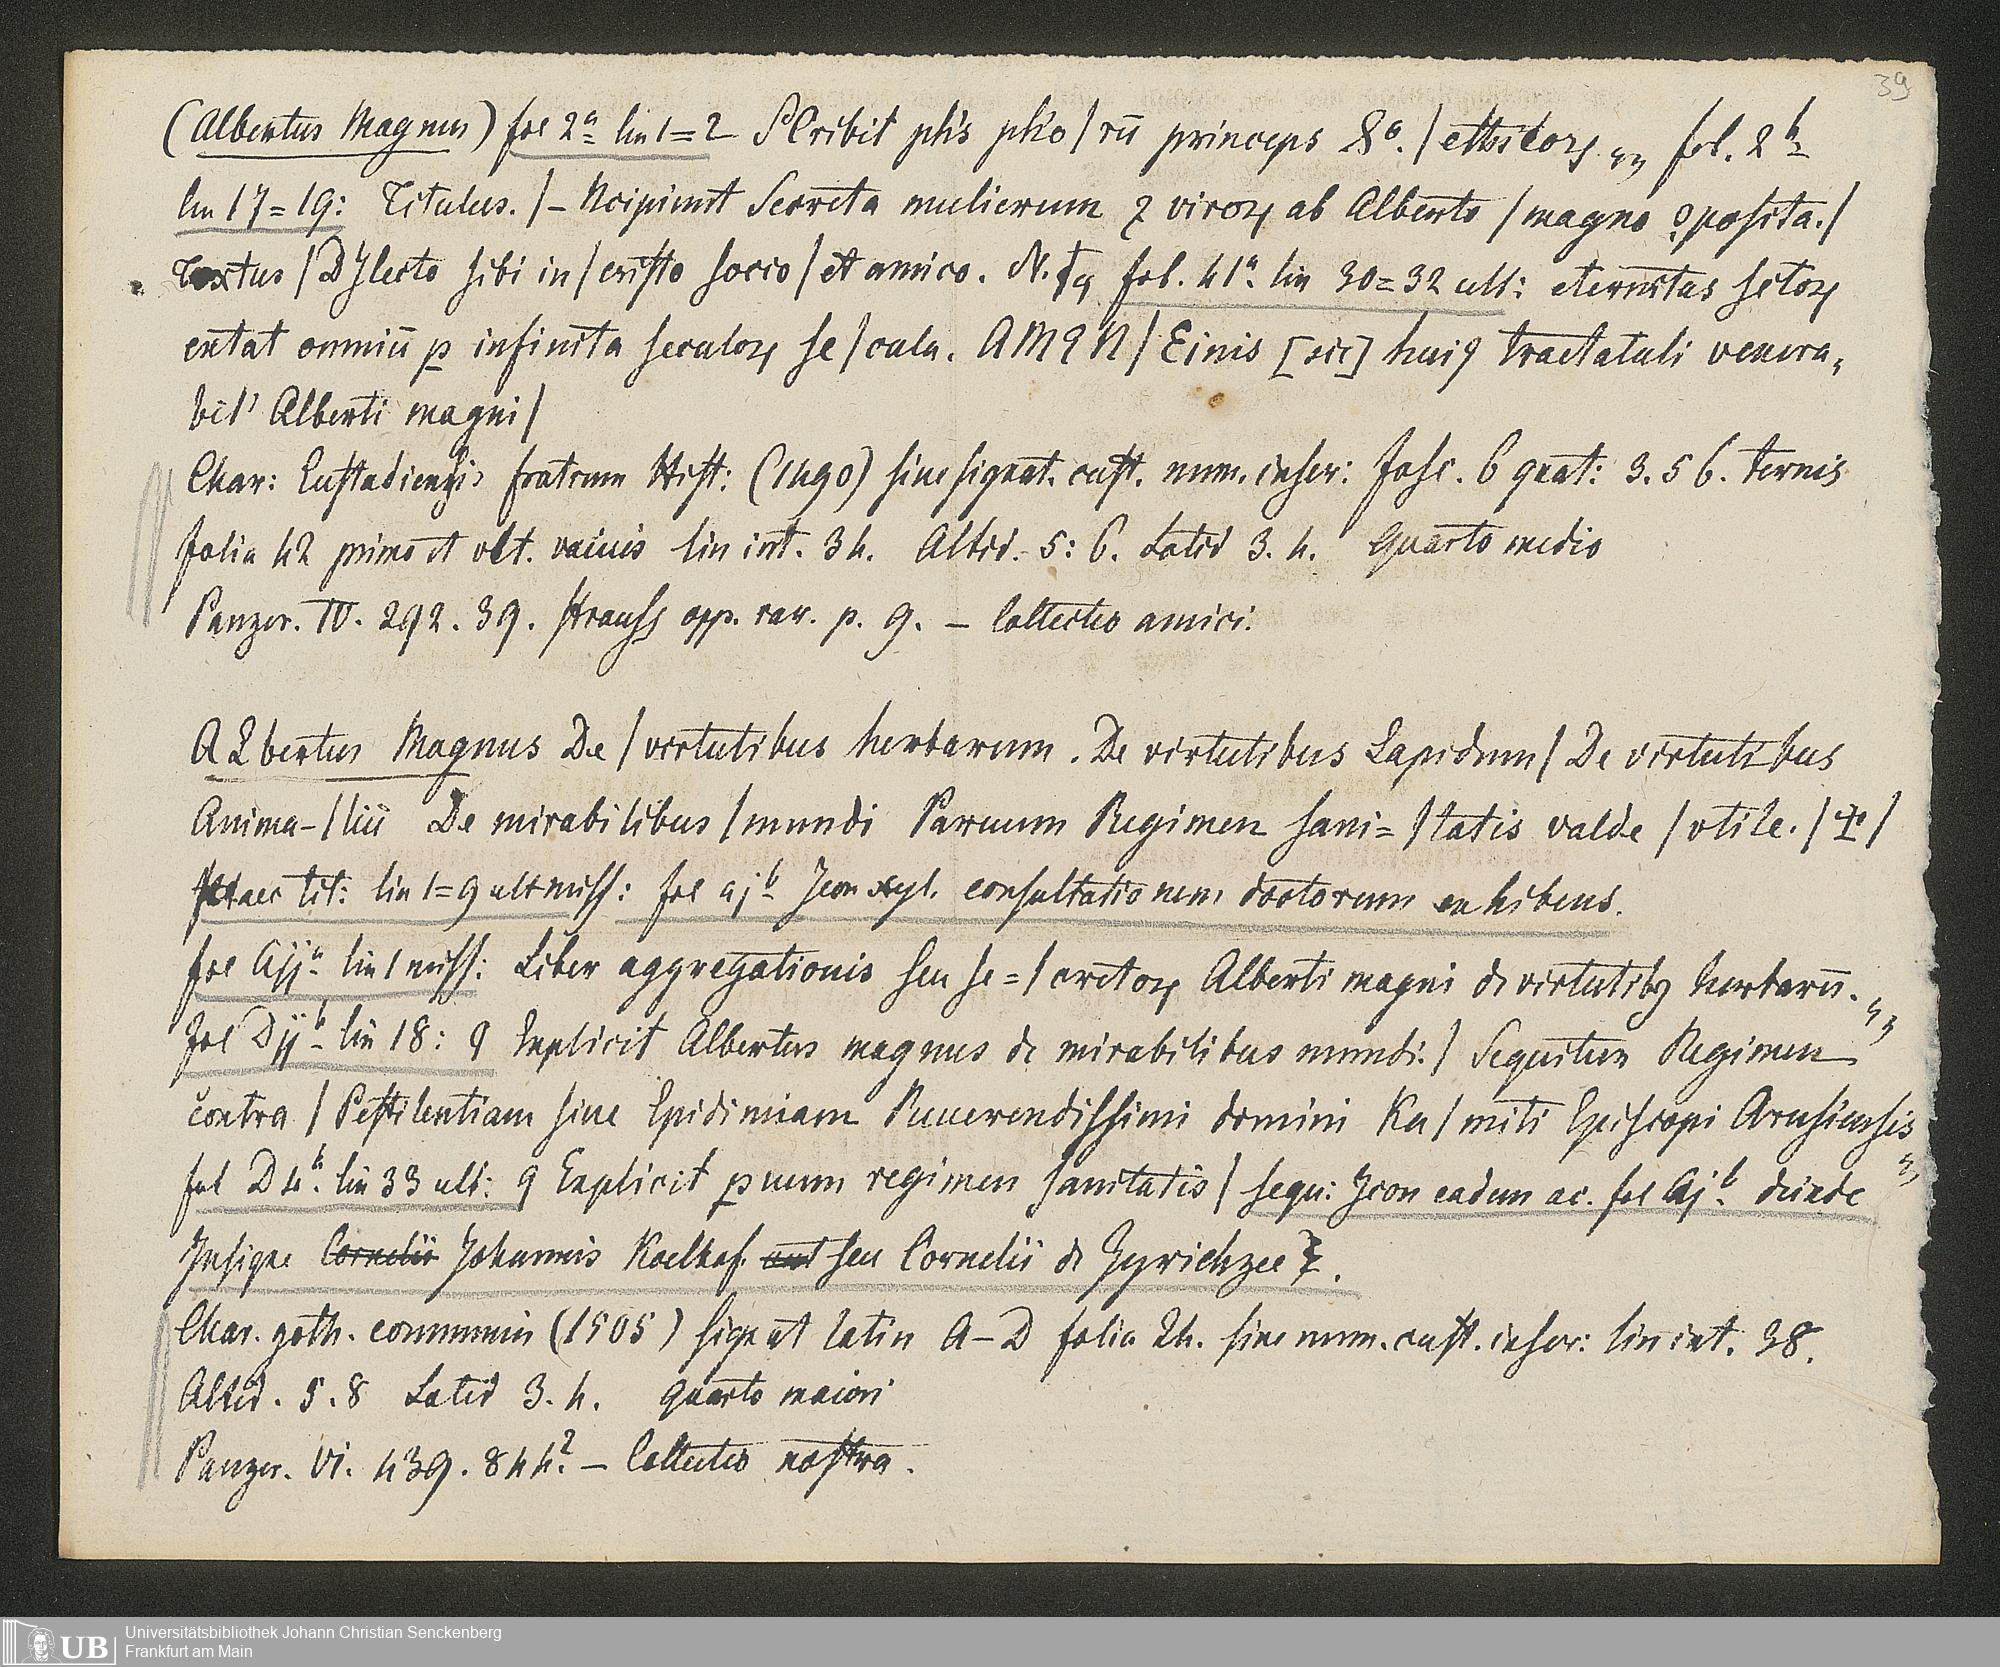 39
(Albertus Magnus) fol 2a lin 1=2 SCribit phs pho/rū princeps 8o. / ethicoꝝ „ fol. 2b
lin 17=19: Titulus. /-Ncipiunt Secreta mulierum ⁊ viroꝝ ab Alberto / magno ꝯposita./
Textus / DYlecto sibi in / cristo socio / et amico. N. fol. 41a. lin 30=32 ult: eternitas sctoꝝ
omniū ꝑ infinita seculoꝝ se / cula. AMEN / Einis [sic] huiꝰ tractatuli venera„
bil' Alberti magni /
Char: Eustadiensis fratrum Hist: (1490) sine signat. cust. num. inscr: Fasc. 6 quat: 3. 5 6. ternis
folia 42 primo et vlt. vacuis lin int. 34. Altid. 5: 6. Latid 3. 4. Quarto medio
Panzer. IV. 292. 39. Strauss opp. rar. p. 9. – Collectio amici.
ALbertus Magnus De / virtutibus herbarum. De virtutibus Lapidum / De virtutibus
Anima-/liū De mirabilibus / mundi Paruum Regimen sani= / tatis valde / vtile. / ✠ /
Haec tit: lin 1=9 ult miss: fol ajb Icon xyl. consultationem doctorum exhibens.
fol Aija lin 1 miss: Liber aggregationis seu se= / cretoꝝ Alberti magni de virtutibꝫ herbarū. „
fol Dijb lin 18: Explicit Albertus magnus de mirabilibus mundi. / Sequitur Regimen
contra / Pestilentiam siue Epidimiam Reuerendissimi domini Ka / miti Episcopi Arusiensis „
fol D4b. lin 33 ult: Explicit ꝑuum regimen sanitatis / sequ: Icon eadem ac. fol Ajb deinde
Insigne Cornelii Johannis Koelhof. aut seu Cornelii de Zyrichzee.
Char. goth. communis (1505) signat latin A–D folia 24. sine num. cust. inscr: lin int. 38.
Altid. 5. 8 Latid 3. 4. quarto maiori
Panzer. VI. 439. 844? – Collectio nostra.
UB Universitätsbibliothek Johann Christian Senckenberg
Frankfurt am Main